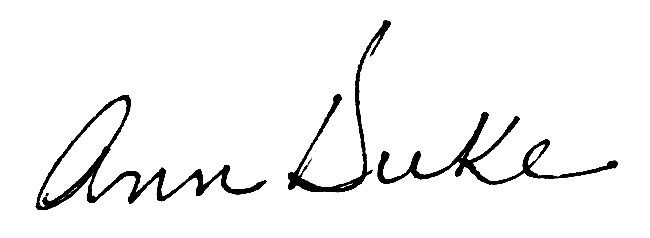 Ann Duke